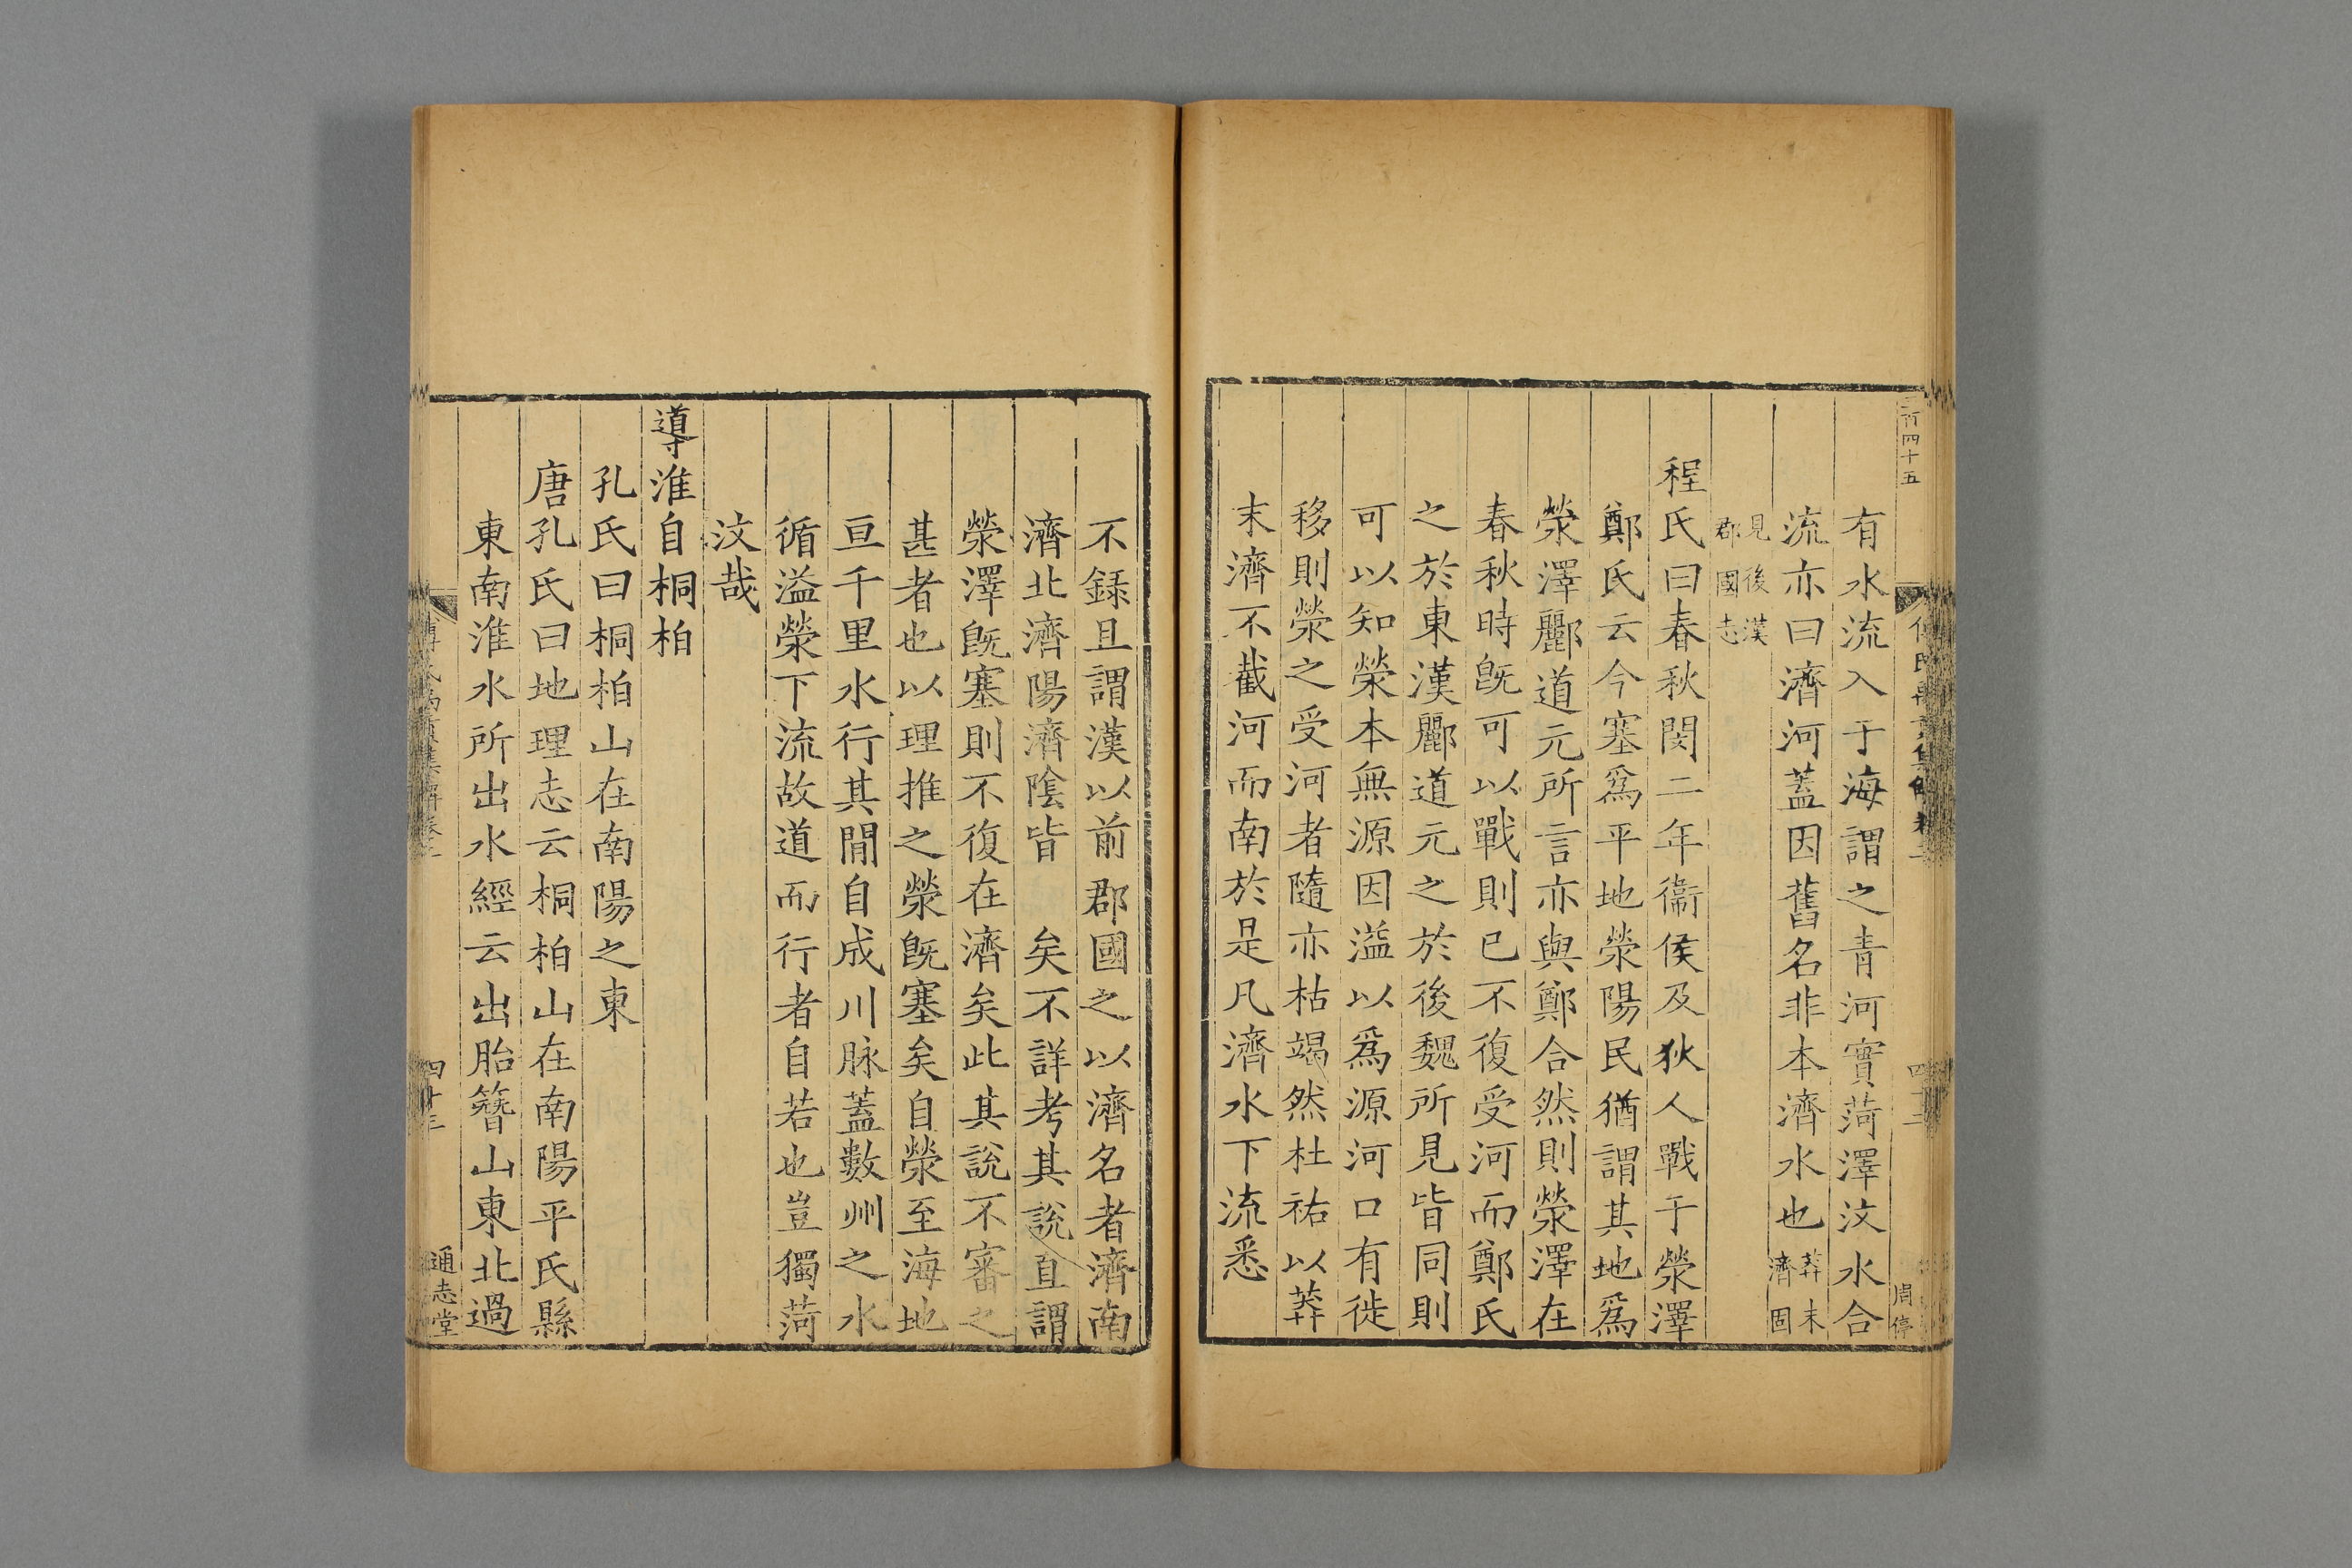 有水流入于海謂之青河實菏澤汶水合
流亦曰濟河蓋因舊名非本濟水也莽末濟固
見後漢郡國志
程氏曰春秋閔二年衞侯及狄人戰于滎澤
鄭氏云今塞爲平地滎陽民猶謂其地爲
滎澤酈道元所言亦與鄭合然則滎澤在
春秋時既可以戰則已不復受河而鄭氏
之於東漢酈道元之於後魏所見皆同則
可以知滎本無源因溢以爲源河口有徙
移則滎之受河者隨亦枯竭然杜祐以莽
末濟不截河而南於是凡濟水下流悉
不録且謂漢以前郡國之以濟名者濟南
濟北濟陽濟陰皆 矣不詳考其說直謂
滎澤旣塞則不復在濟矣此其說不審之
甚者也以理推之滎旣塞矣自滎至海地
亘千里水行其間自成川脉蓋數州之水
循溢滎下流故道而行者自若也豈獨菏
汶哉
導淮自桐柏
孔氏曰桐柏山在南陽之東
唐孔氏曰地理志云桐柏山在南陽平氏縣
東南淮水所出水經云出胎簪山東北過
四十三
通志堂